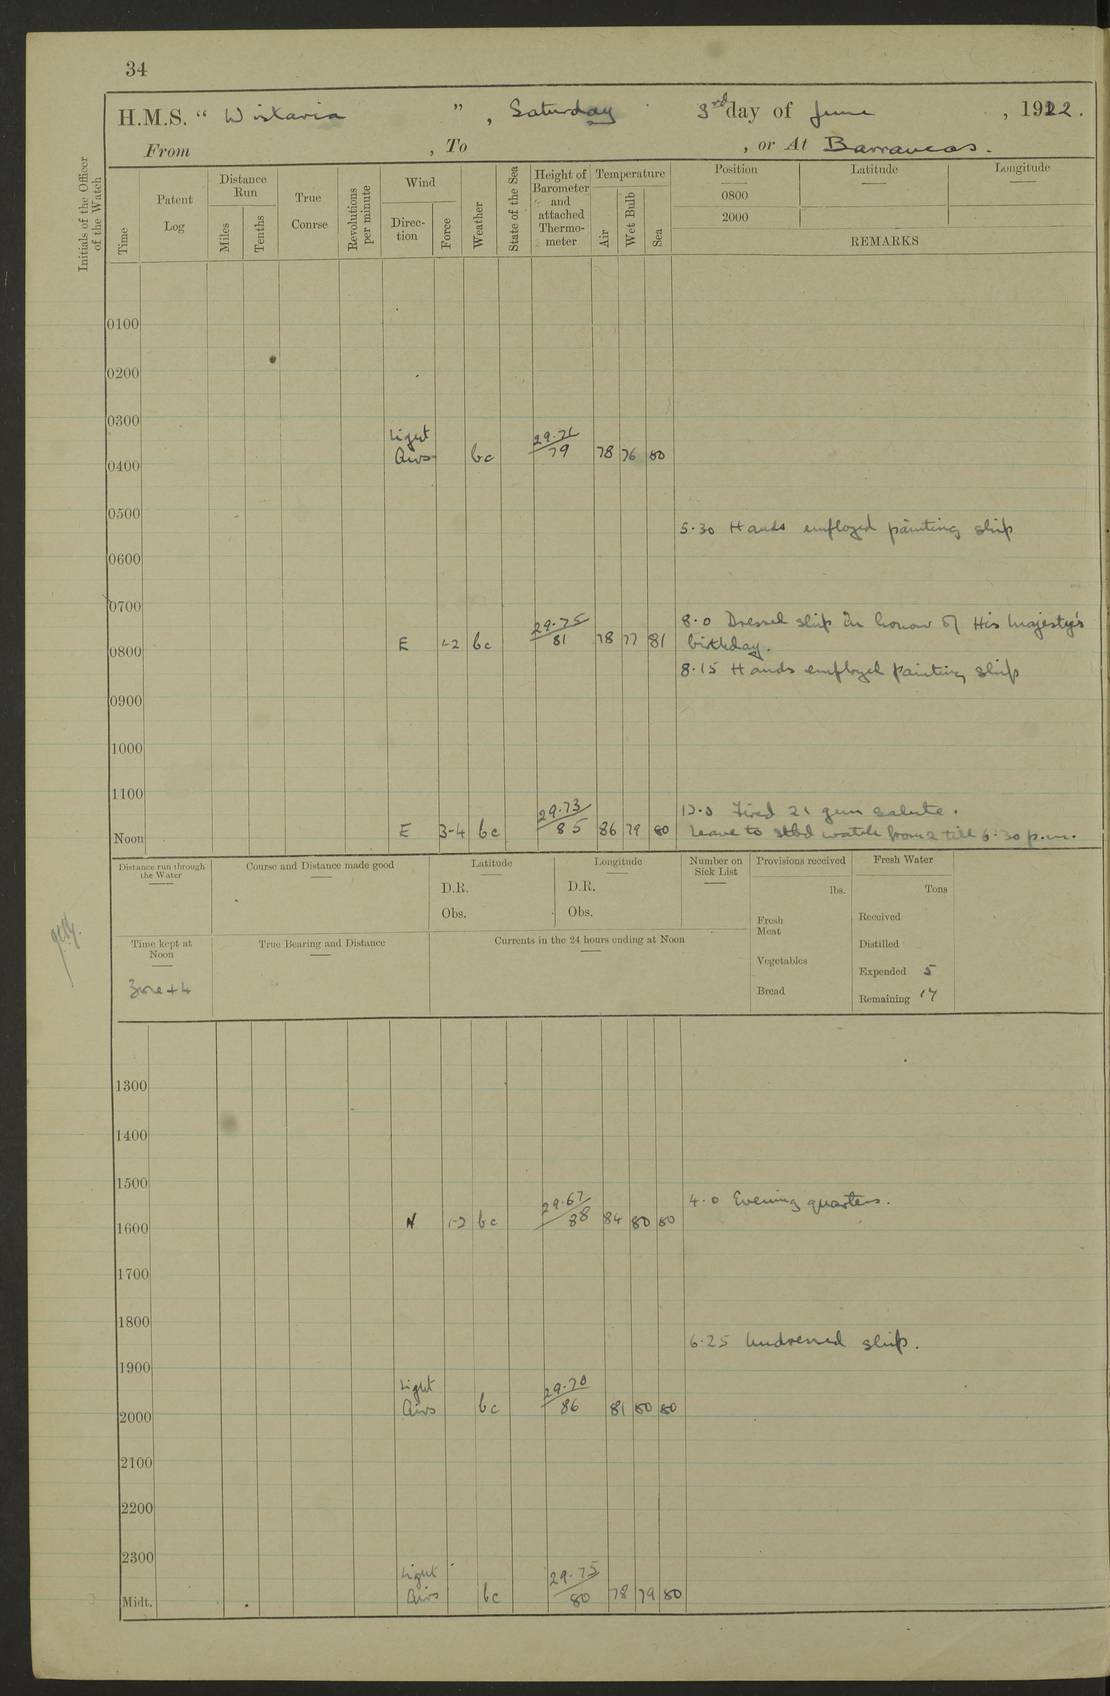 34
H.M.S. “ Wistaria ” , Saturday 3rd day of June , 1922.
From , To , or At Barrancas.
Initials of the Officer of the Watch
Time
Patent Log
Distance Run
Miles
Tenths
True Course
Revolutions per minute
Wind
Direc-tion
Force
Weather
State of the Sea
Height of Barometer and attached Thermo-meter
Temperature
Air
Wet Bulb
Sea
Position Latitude Longitude
0800
2000
REMARKS
0100
0200
0300
0400 Light Airs bc 29.71/79 78 76 80
0500
5.30 Hands employed painting ship
0600
0700
8.0 Dressed ship in honour of His Majesty's
0800 E 1-2 bc 29.75/81 78 77 81 birthday.
8.15 Hands employed painting ship
0900
1000
1100
12.0 Fired 21 gun salute.
Noon E 3-4 bc 29.73/85 86 79 80 Leave to stbd watch from 2 till 6.30 p.m.
Distance run through the Water
Course and Distance made good
Latitude
D.R.
Obs.
Longitude
D.R.
Obs.
Number on Sick List
Provisions received
lbs.
Fresh Meat
Vegetables
Bread
Fresh Water
Tons
Received
Distilled
Expended 5
Remaining 17
Time kept at Noon
Zone +4
True Bearing and Distance
Currents in the 24 hours ending at Noon
1300
1400
1500
4.0 Evening quarters.
1600 N 1-2 bc 29.67/88 84 80 80
1700
1800
6.25 Undressed ship.
1900
2000 Light Airs bc 29.70/86 81 80 80
2100
2200
2300
Midt. Light Airs bc 29.75/80 78 79 80